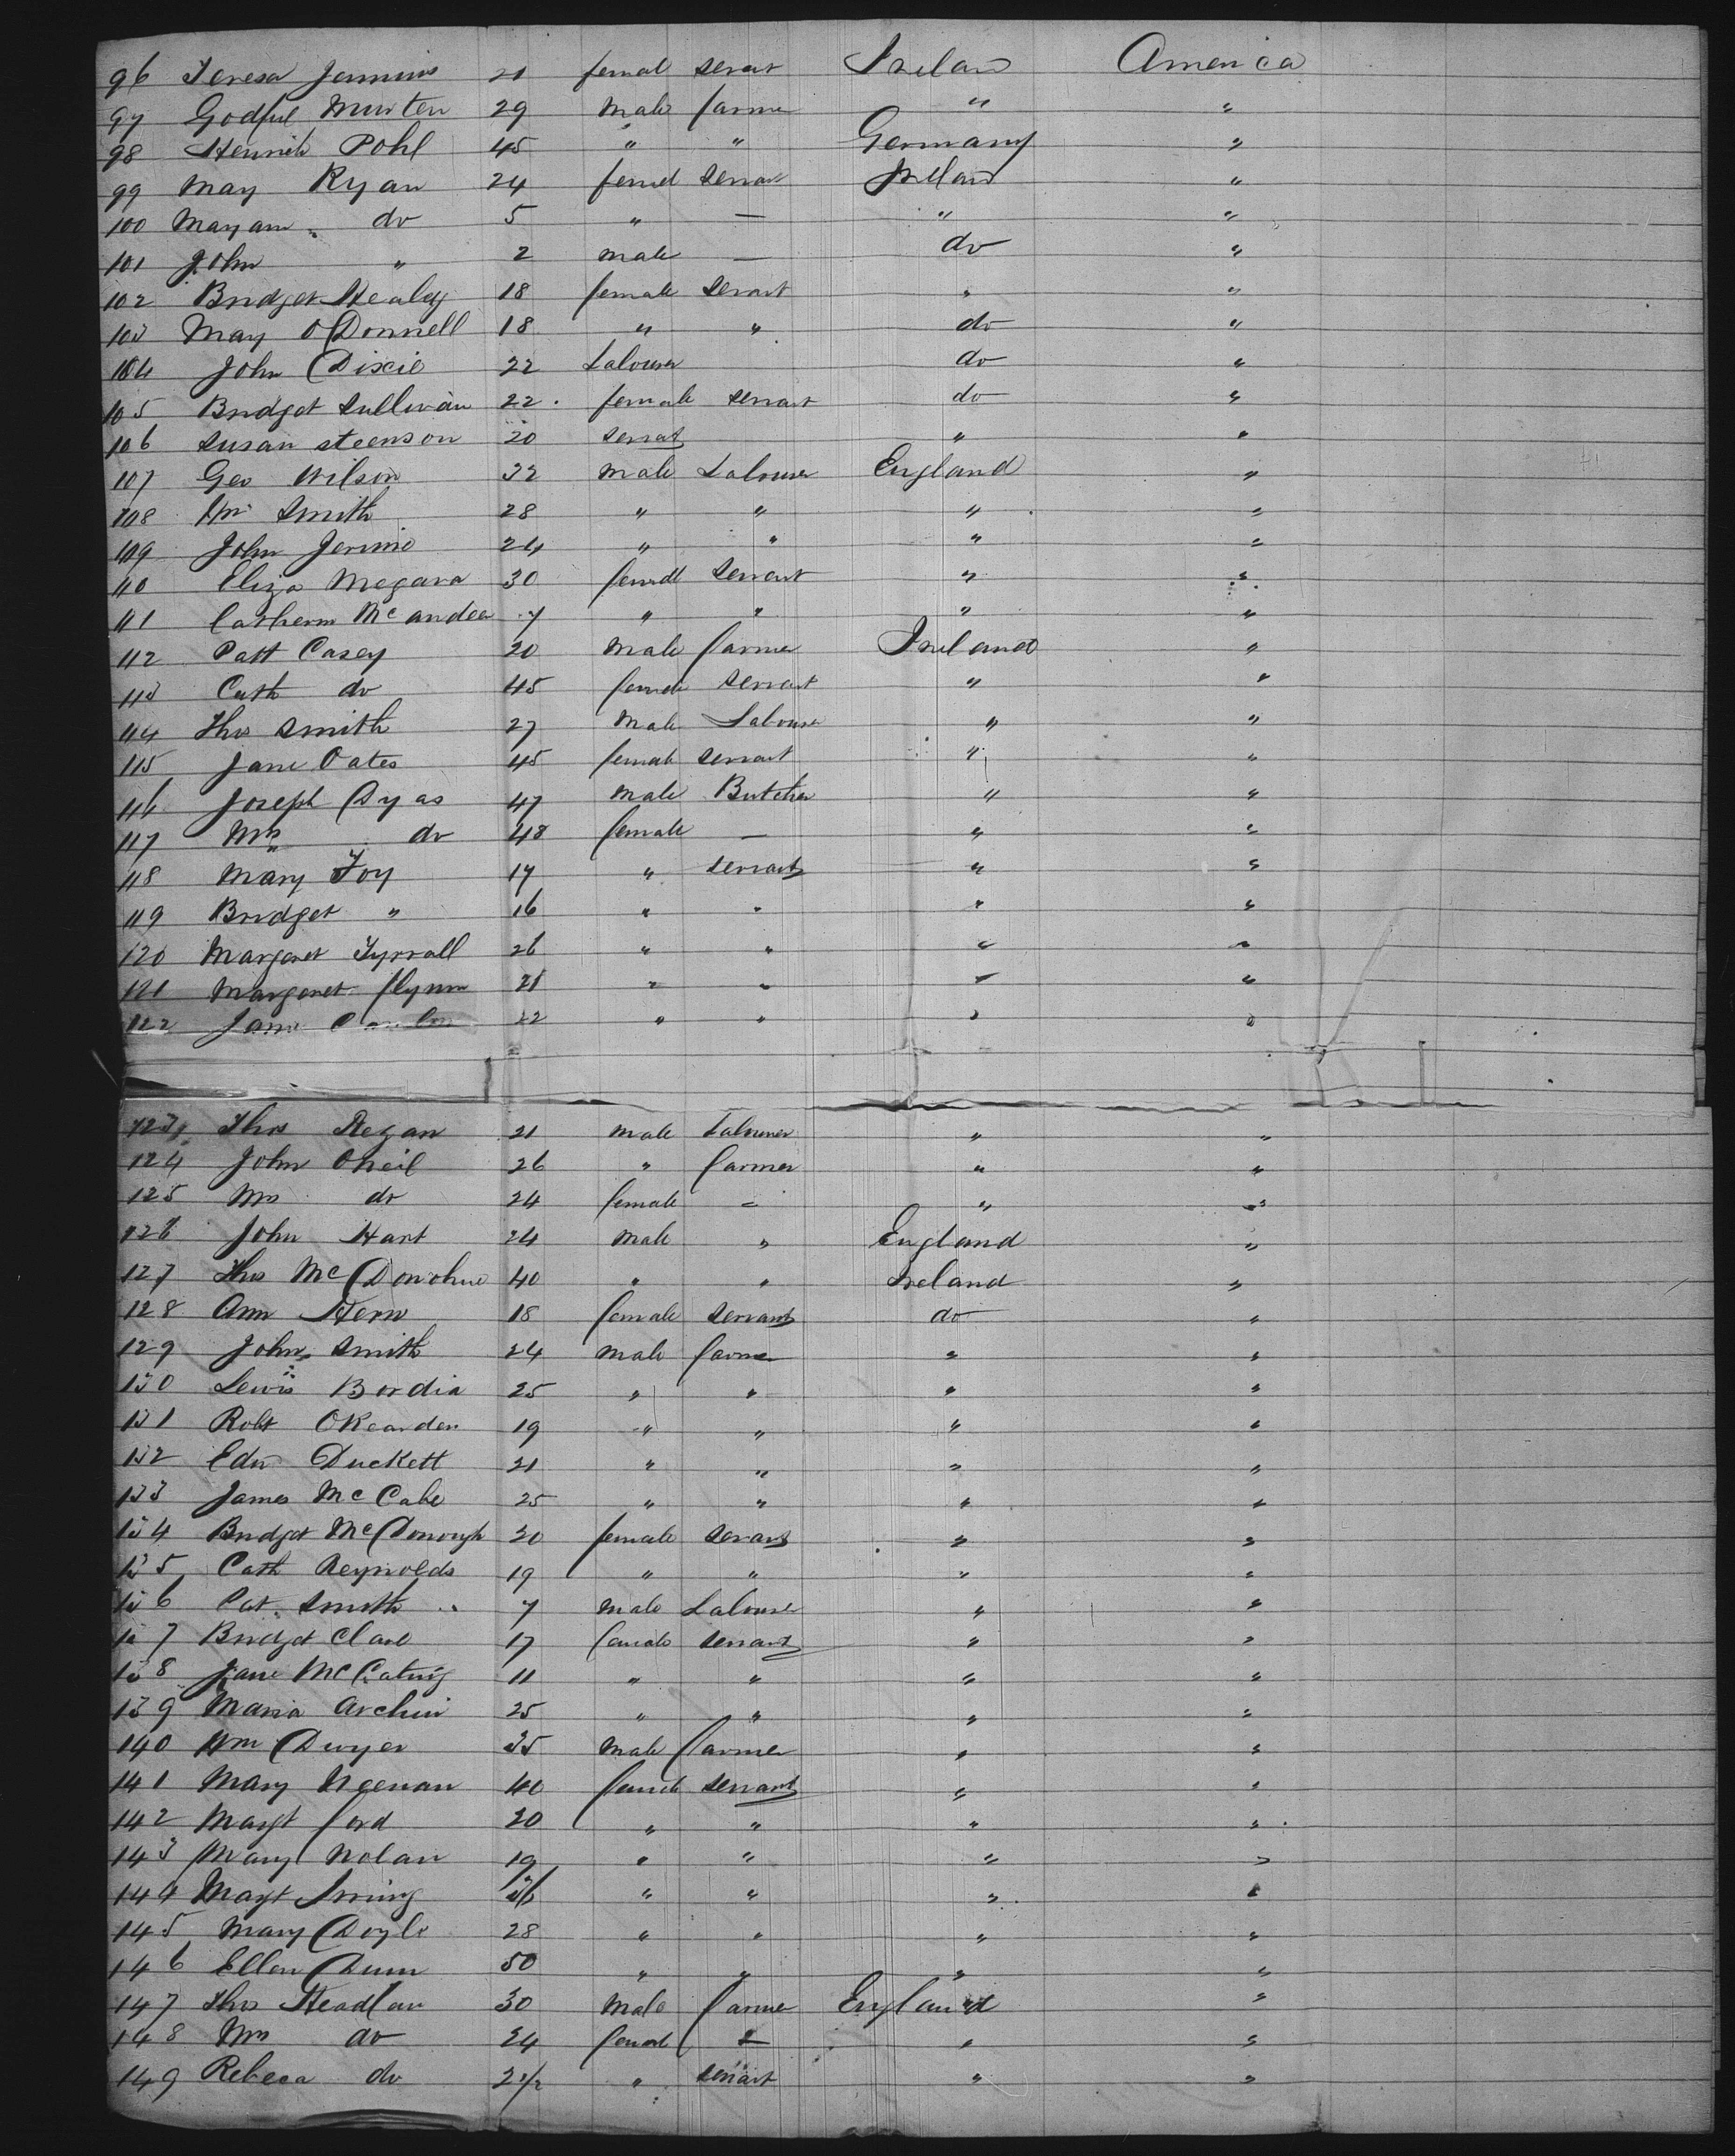 96 Teresa Jennins 21 femal servat Ireland America
97 Godful Murten 29 male farmer " "
98 Henrich Pohl 45 " " Germany "
99 May Ryan 24 femel servat Ireland "
100 Mayann do 5 " — " "
101 John " 2 male — do "
102 Bridget Healey 18 female servant " "
103 May O Donnell 18 " " do "
104 John Dixie 22 Labourer do "
105 Bridget Sullivan 22 female servant do "
106 Susan Steenson 20 servat " "
107 Geo Wilson 32 male Labourer England "
108 Wm Smith 28 " " " "
109 John Jerime 24 " " " "
110 Eliza Megara 30 femall servant " "
111 Catherin McAndee 7 " " " "
112 Patt Casey 20 male farmer Ireland "
113 Cath do 45 female servant " "
114 Thos Smith 27 male Labourer " "
115 Jane Oates 45 female servant " "
116 Joseph Dyas 47 male Butcher " "
117 Mrs do 48 female — " "
118 Mary Foy 17 " servant " "
119 Bridget " 16 " " " "
120 Margaret Tyrrall 26 " " " "
121 Margaret Flynn 21 " " " "
122 Jane 22 " " " "
123 Thos Regan 21 male Labourer " "
124 John Oneil 26 " farmer " "
125 Mrs do 24 female " " "
126 John Hart 24 male " England "
127 Thos McDonohue 40 " " Ireland "
128 Ann Hern 18 female servant do "
129 John Smith 24 male farmer " "
130 Lewis Bordia 25 " " " "
131 Robt OKearden 19 " " " "
132 Edw Duckett 21 " " " "
133 James McCabe 25 " " " "
134 Bridget McDonough 20 female servant " "
135 Cath Reynolds 19 " " " "
136 Pat Smith 7 male Labourer " "
137 Bridget Clare 17 female servant " "
138 Jane 11 " " " "
139 Maria Archin 25 " " " "
140 Wm Dwyer 35 male farmer " "
141 Mary Neenan 40 female servant " "
142 Magt Ford 20 " " " "
143 Mary Nolan 19 " " " "
144 Magt Irving 36 " " " "
145 Mary Doyle 28 " " " "
146 Ellen Dunn 50 " " " "
147 Thos Headlan 30 male farmer England "
148 Mrs do 24 femal — " "
149 Rebeca do 2 1/2 " servant " "